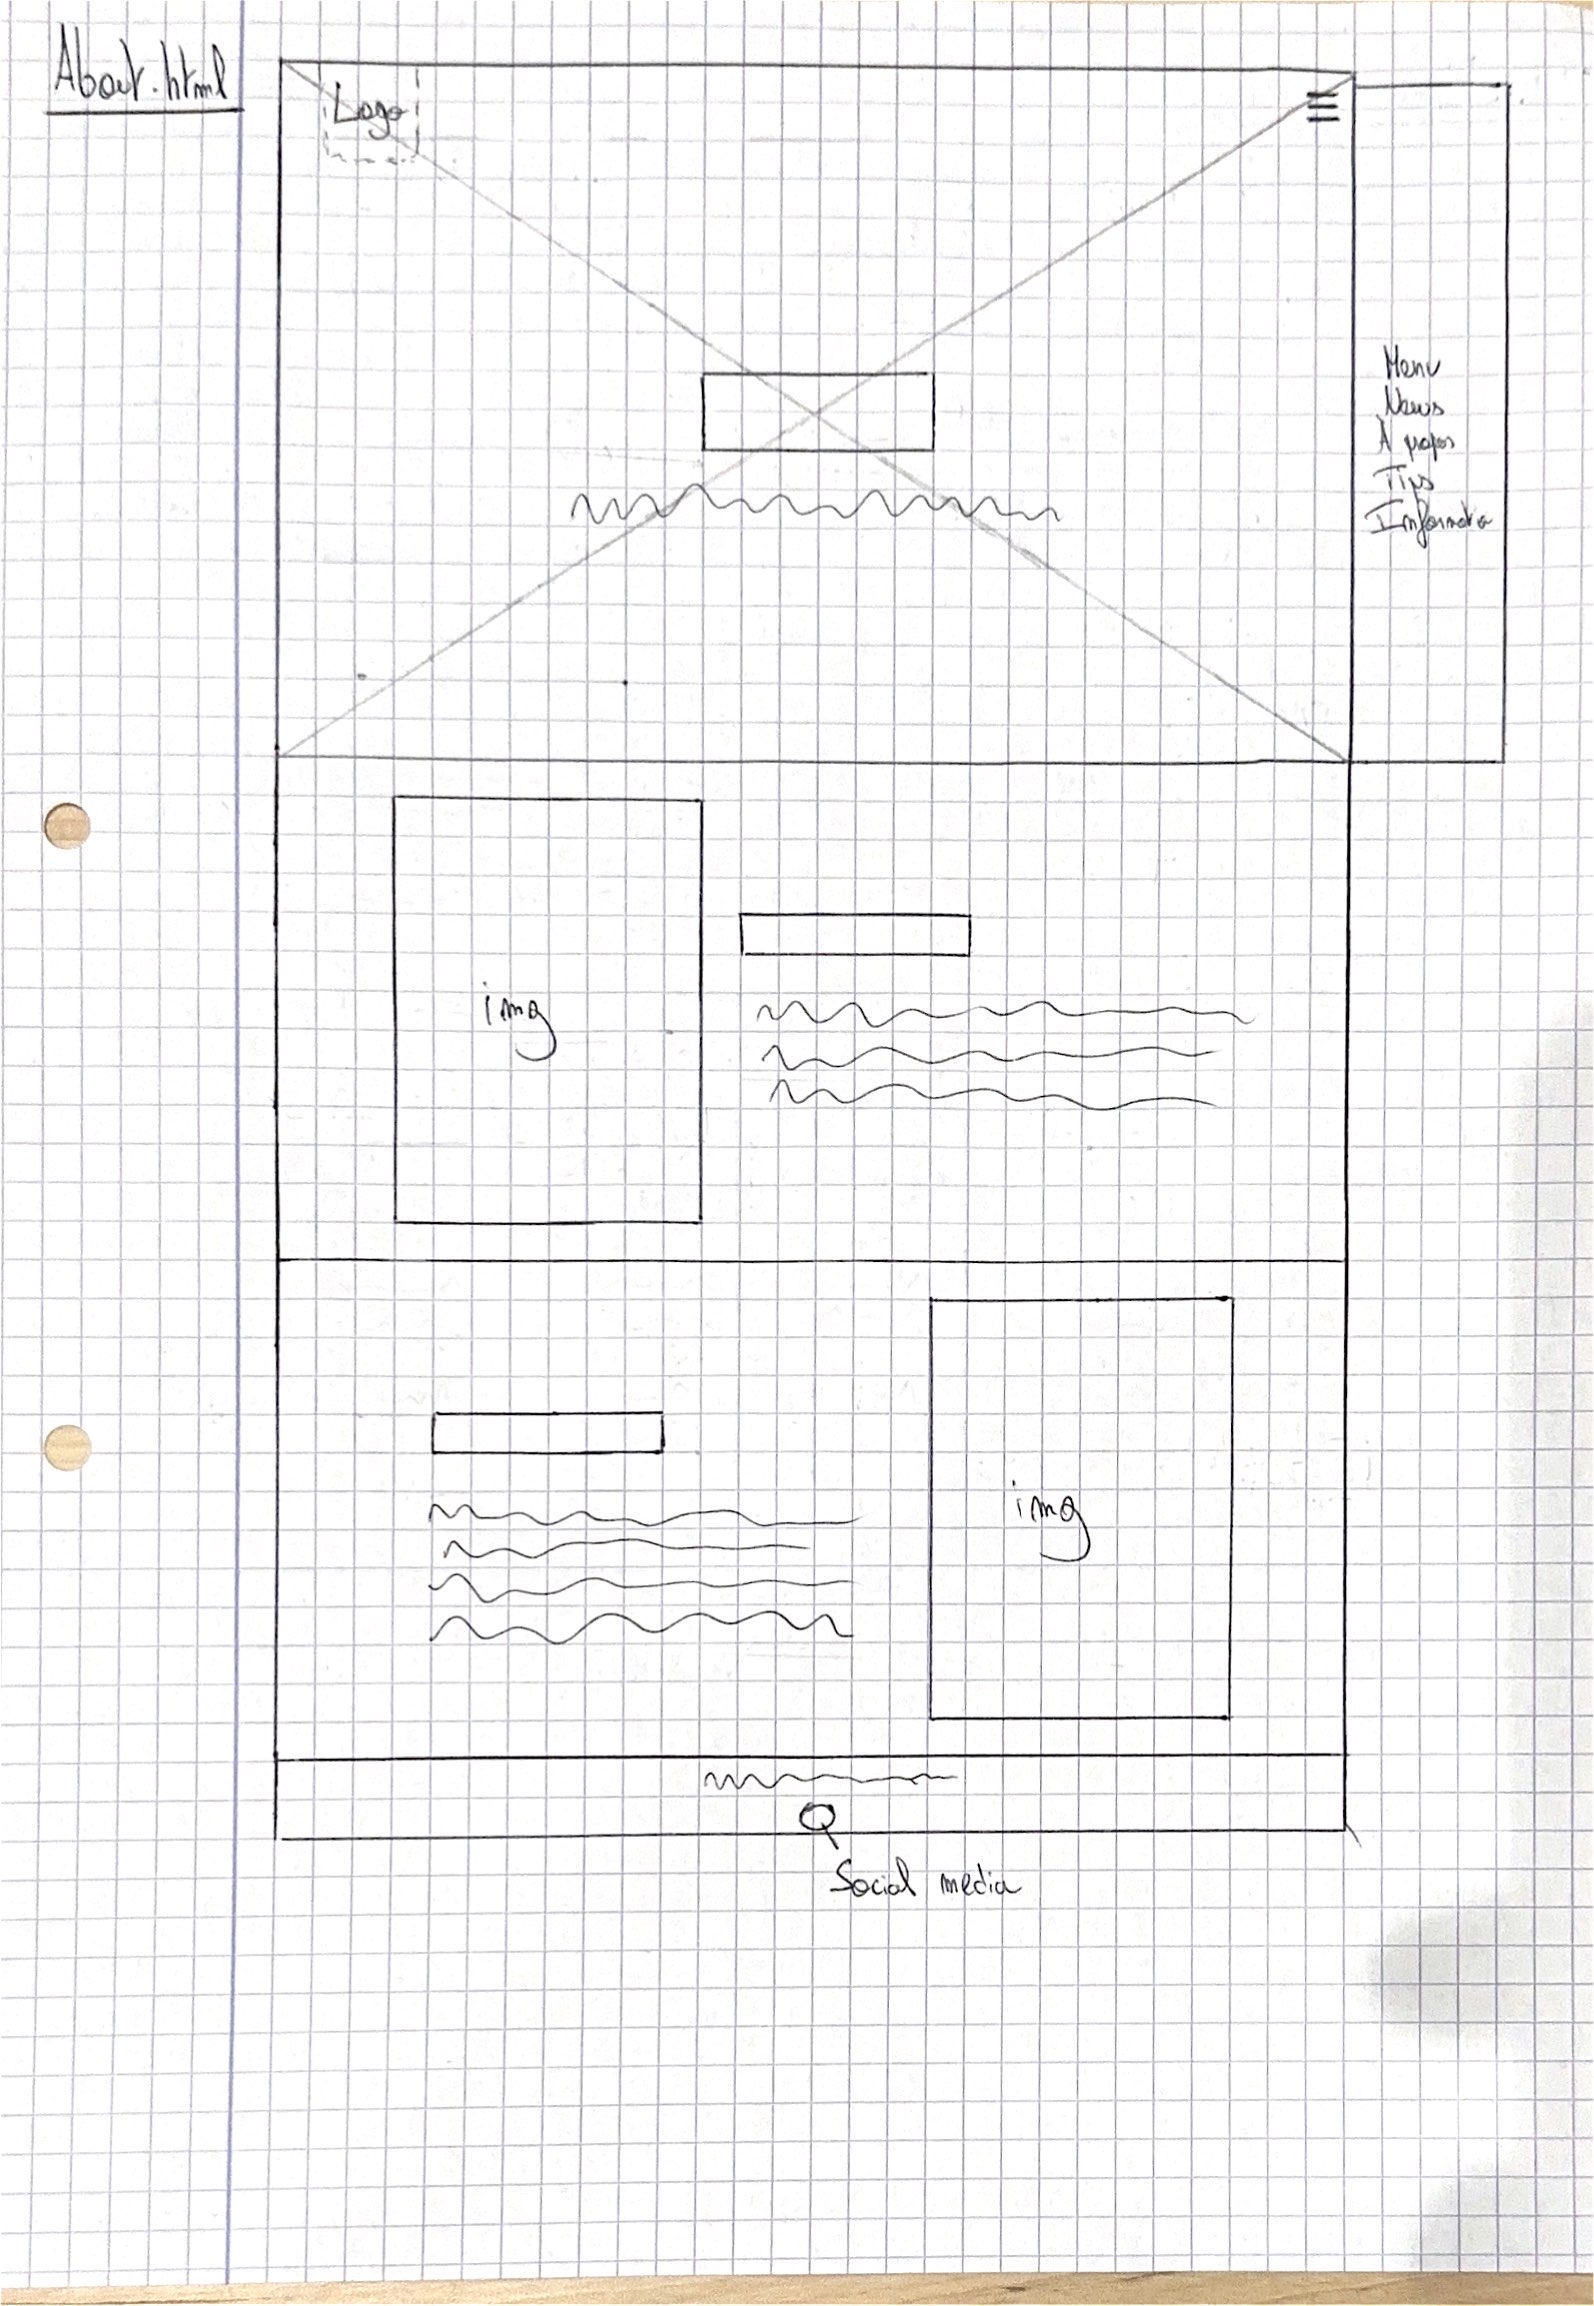 About.html
Logo
Menu
News
À propos
Tips
img
img
Social media